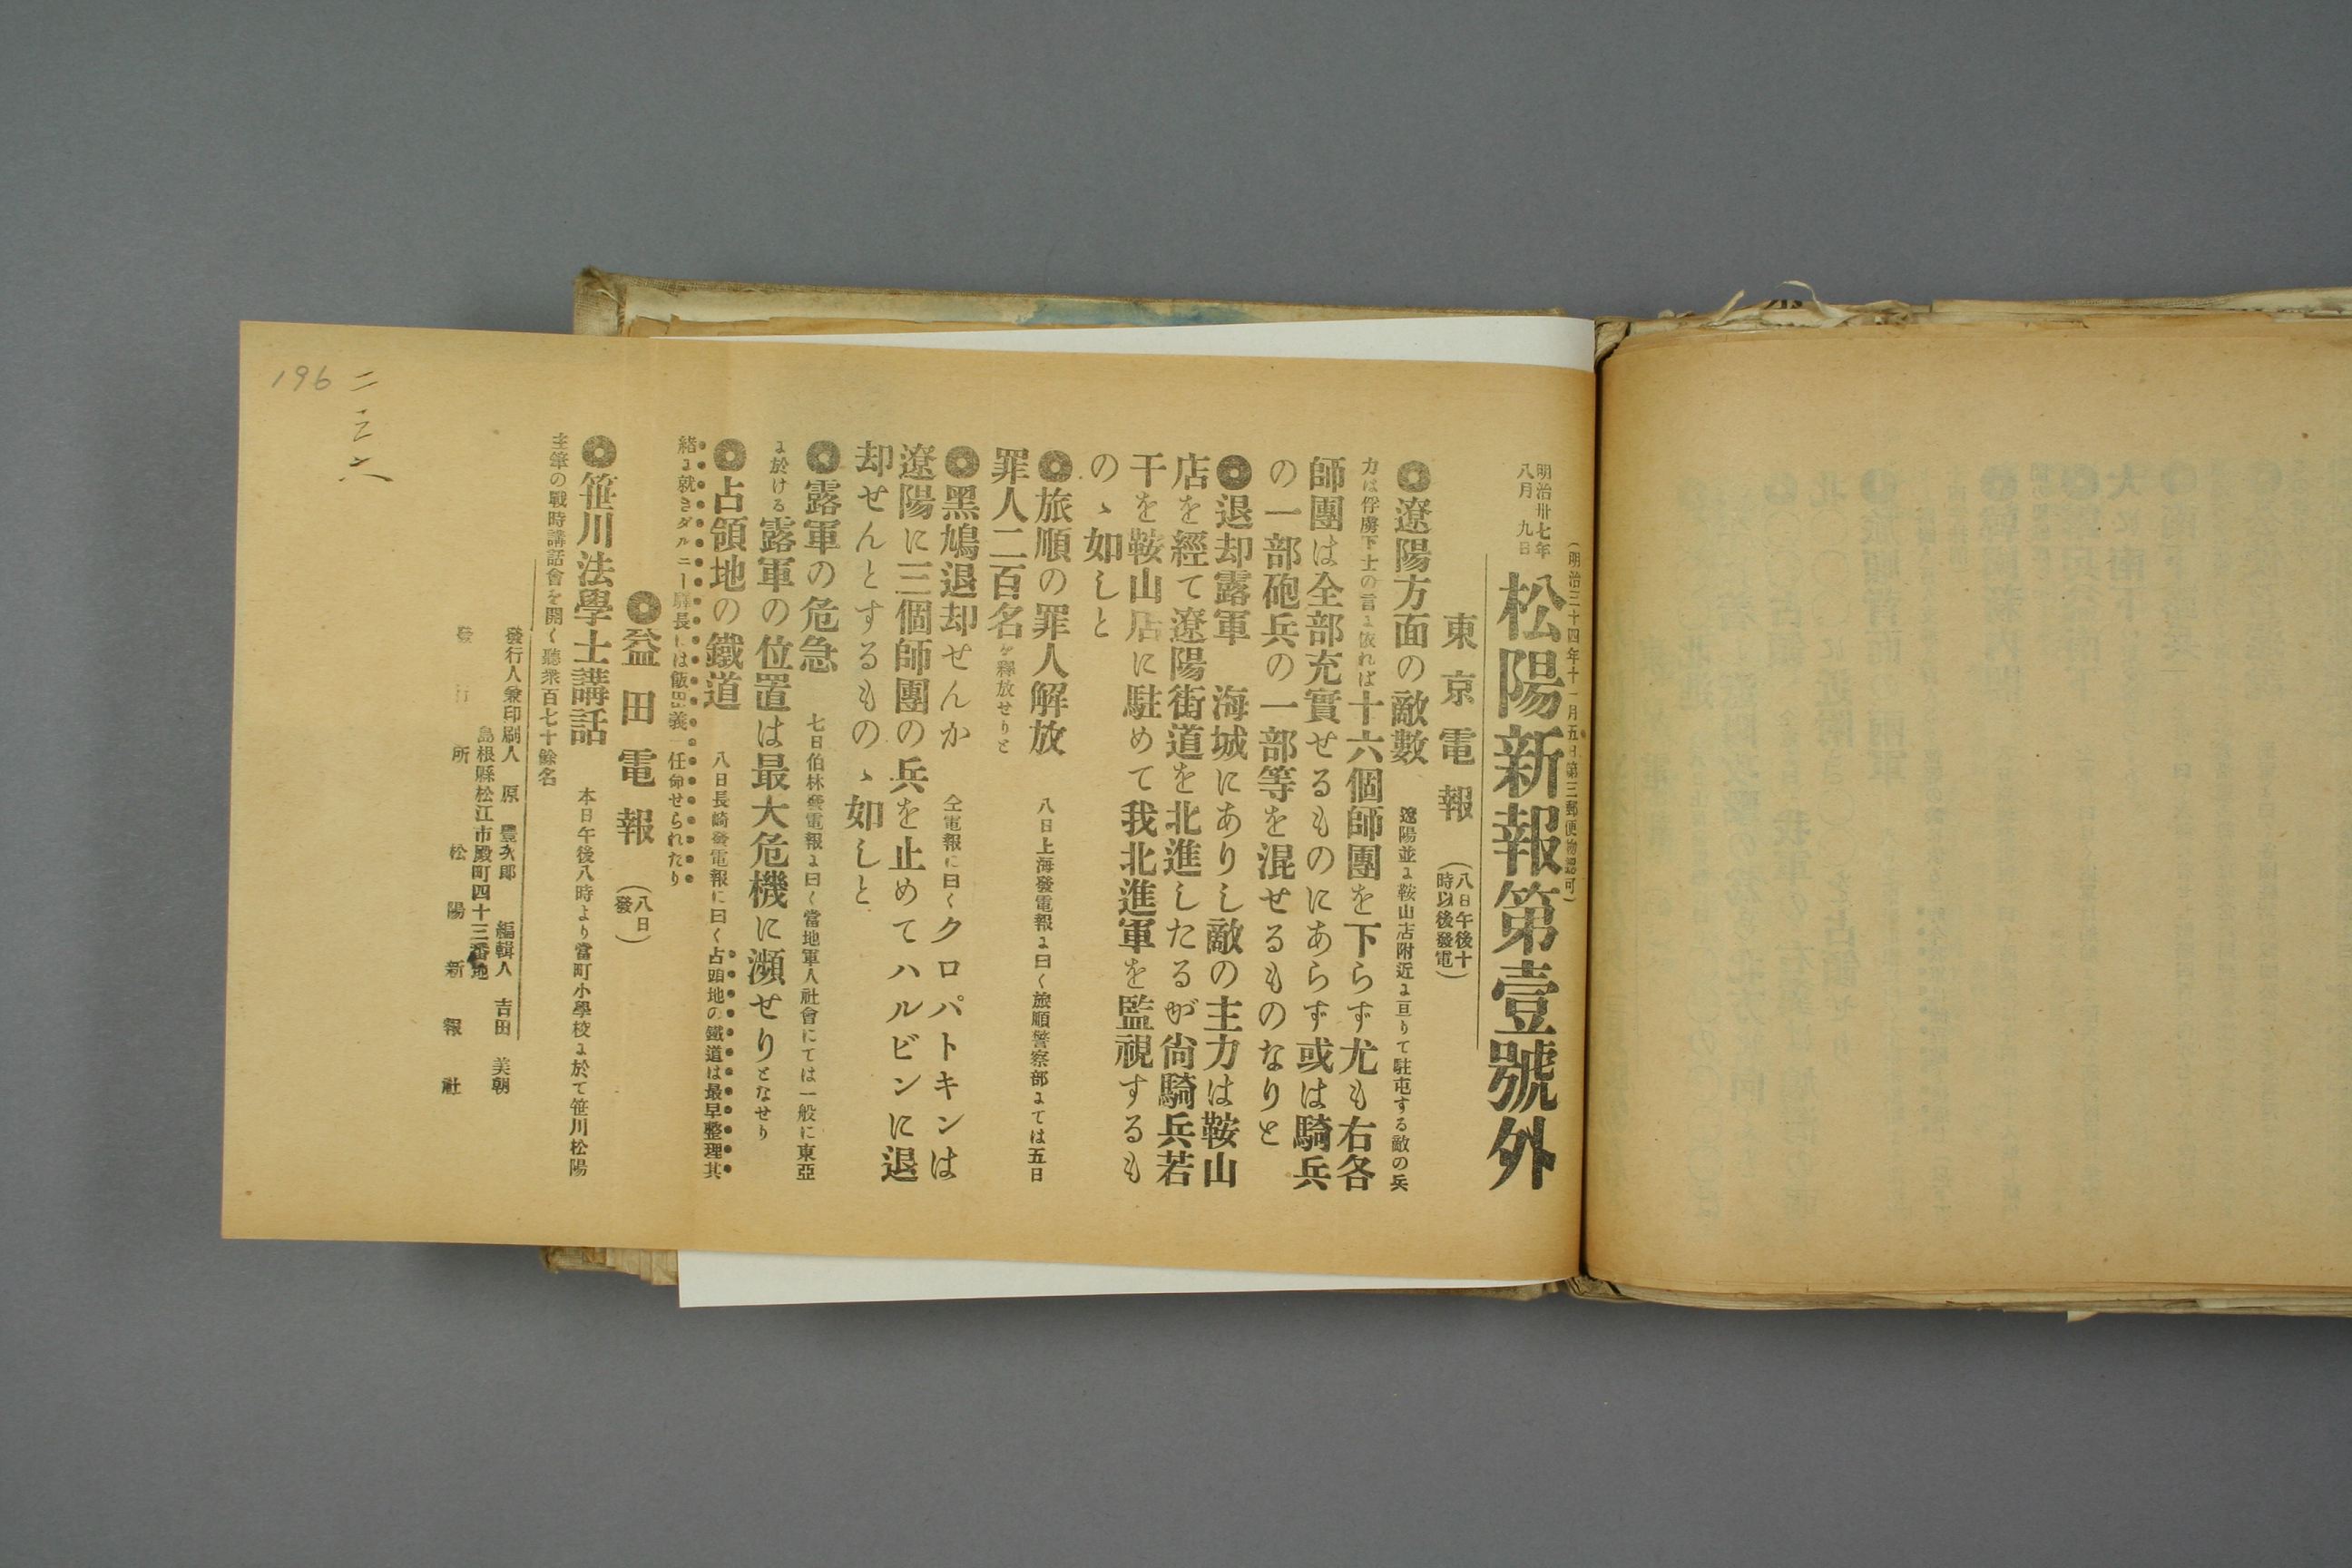 (明治三十四年十一月五日第三郵便物認可)
明治卅七年
八月九日
松陽新報第壹號外
東京電報
(八日午後十
時以後發電)
◎遼陽方面の敵數 遼陽並ʐ鞍山店附近ʐ亘りて駐屯する敵の兵
力は俘虜下士の言ʐ依れば十六個師團を下らず尤も右各
師團は全部充實せるものにあらず或は騎兵
の一部砲兵の一部等を混せるものなりと
◎退却露軍 海城にありし敵の主力は鞍山
店を經て遼陽街道を北進したるが尙騎兵若
干を鞍山店に駐めて我北進軍を監視するも
のゝ如しと
◎旅順の罪人解放 八日上海發電報に曰く旅順警察部にては五日
罪人二百名を釋放せりと
◎黑鳩退却せんか 仝電報に曰くクロパトキンは
遼陽に三個師團の兵を止めてハルビンに退
却せんとするものゝ如しと
◎露軍の危急 七日伯林發電報に曰く當地軍人社會にては一般に東亞
に於ける露軍の位置は最大危機に瀕せりとなせり
◎占領地の鐵道 八日長崎發電報に曰く占領地の鐵道は最早整理其
緒に就きダルニー驛長には飯田義一任命せられたり
◎益田電報
(八日
發)
◎笹川法學士講話 本日午後八時より當町小學校に於て笹川松陽
主筆の戰時講話會を開く聽衆百七十餘名
發行人兼印刷人 原 豐次郎 編輯人 吉田 美朝
島根縣松江市殿町四十三番地
發行所 松陽新報社
二三六
196